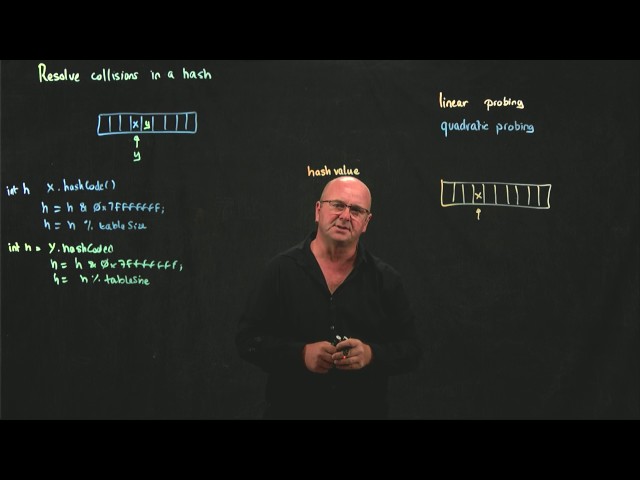 Resolve collisions in a hash
x y
y
int h x.hashCode()
h = h & 0x7FFFFFFF;
h = h % tableSize
int h = y.hashCode()
h = h & 0x7FFFFFFF;
h = h % tableSize
hash value
linear probing
quadratic probing
x